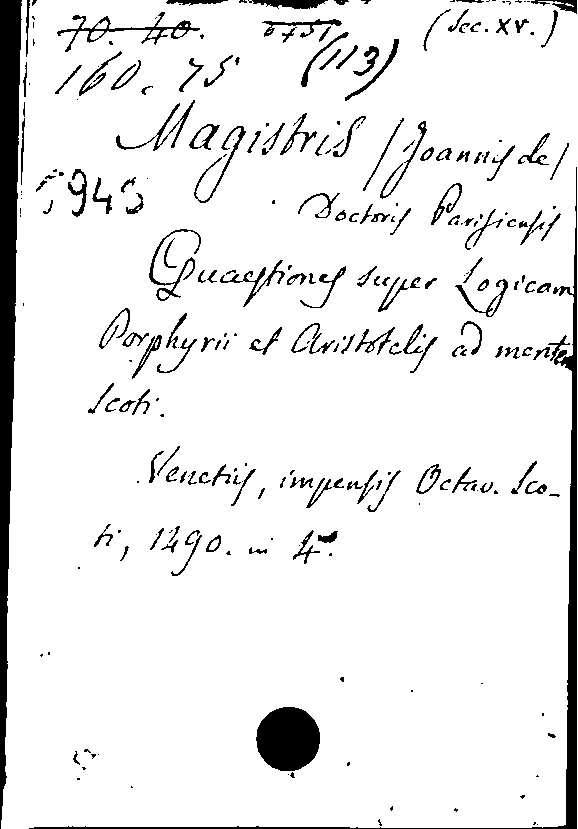 70. 40. (Sec. XV.)
160. 75 (113)
Magistris /Joannis de/
Doctoris Parisiensis
Quaestiones super Logicam
Porphyrii et Aristotelis ad mentem
Scoti.
Venetiis, impensis Octav. Sco-
ti, 1490. in 4º.